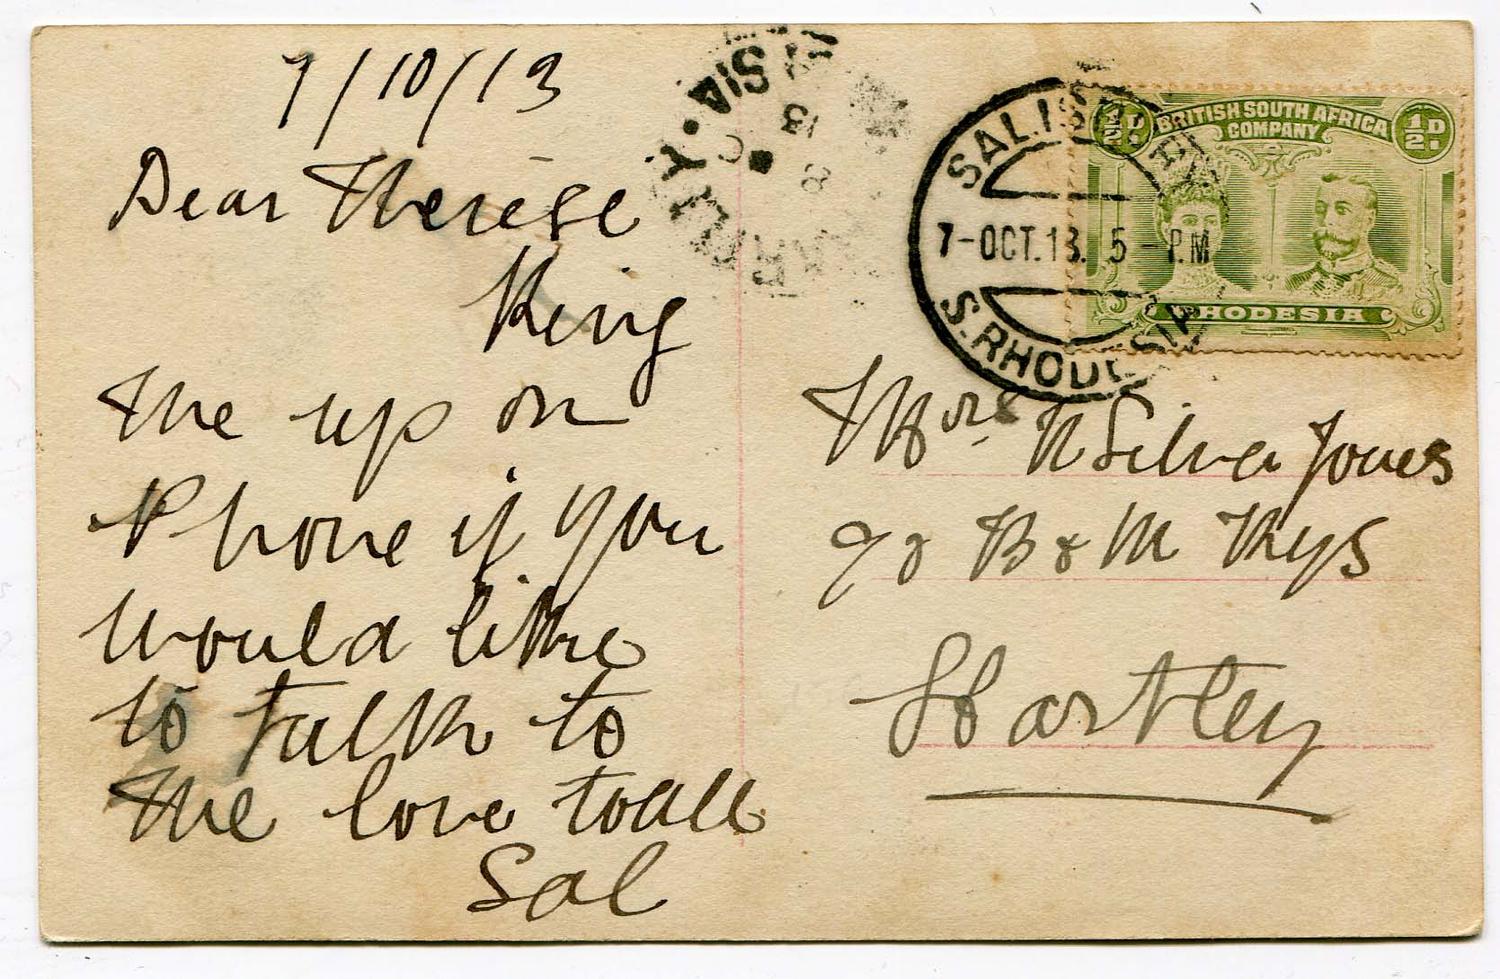 7/10/13
Dear Therese
Ring
me up on
Phone if you
would like
to talk to
me love to all
Sal
HARTLEY.
SIA.
8
13
SALISBURY
7-OCT.13. 5-PM
S.RHODESIA
½D.
BRITISH SOUTH AFRICA
COMPANY
½D.
RHODESIA
Mrs N Silver Jones
c/o B & M Rys
Hartley